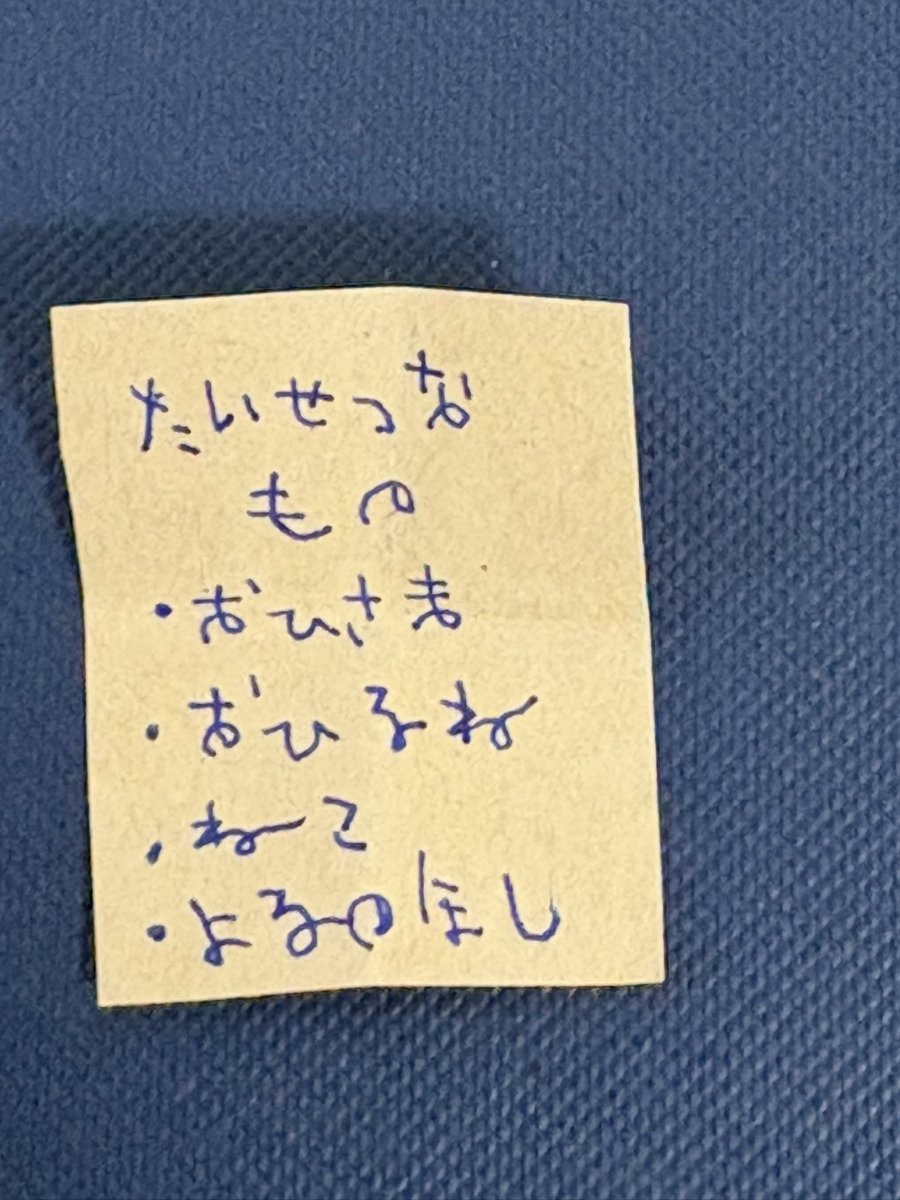 たいせつな
もの
・おひさま
・おひるね
・ねこ
・よるのほし